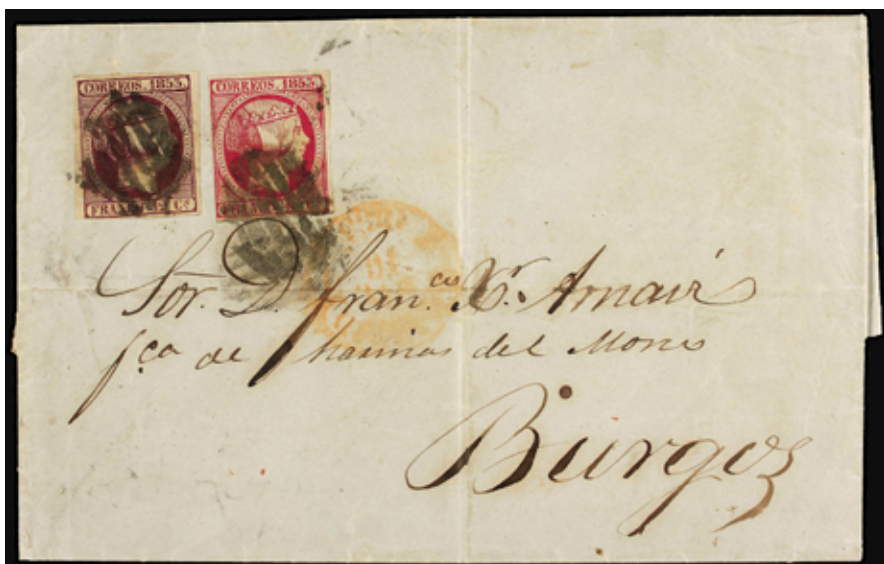 CORREOS. 1853.
CORREOS. 1853.
FRANCO 6 Cs
Sor. D. Franco. Xr. Arnaiz
fca de harinas del Moro
Burgos